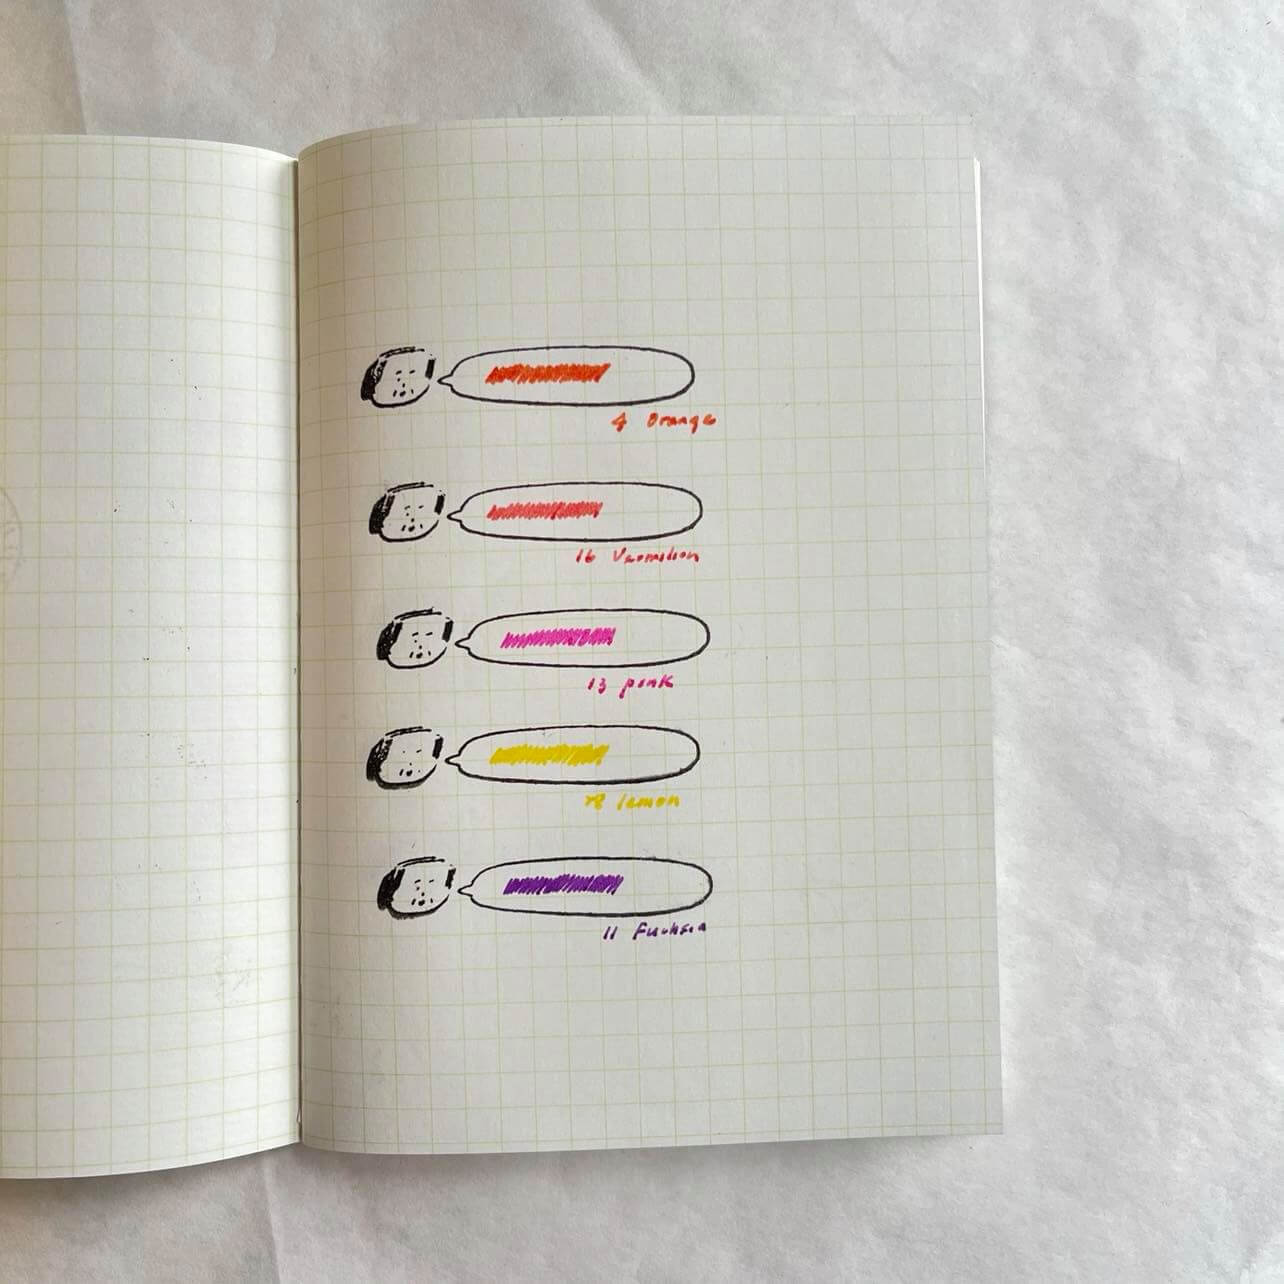 4 Orange
16 Vermilion
13 pink
78 lemon
11 Fuchsia